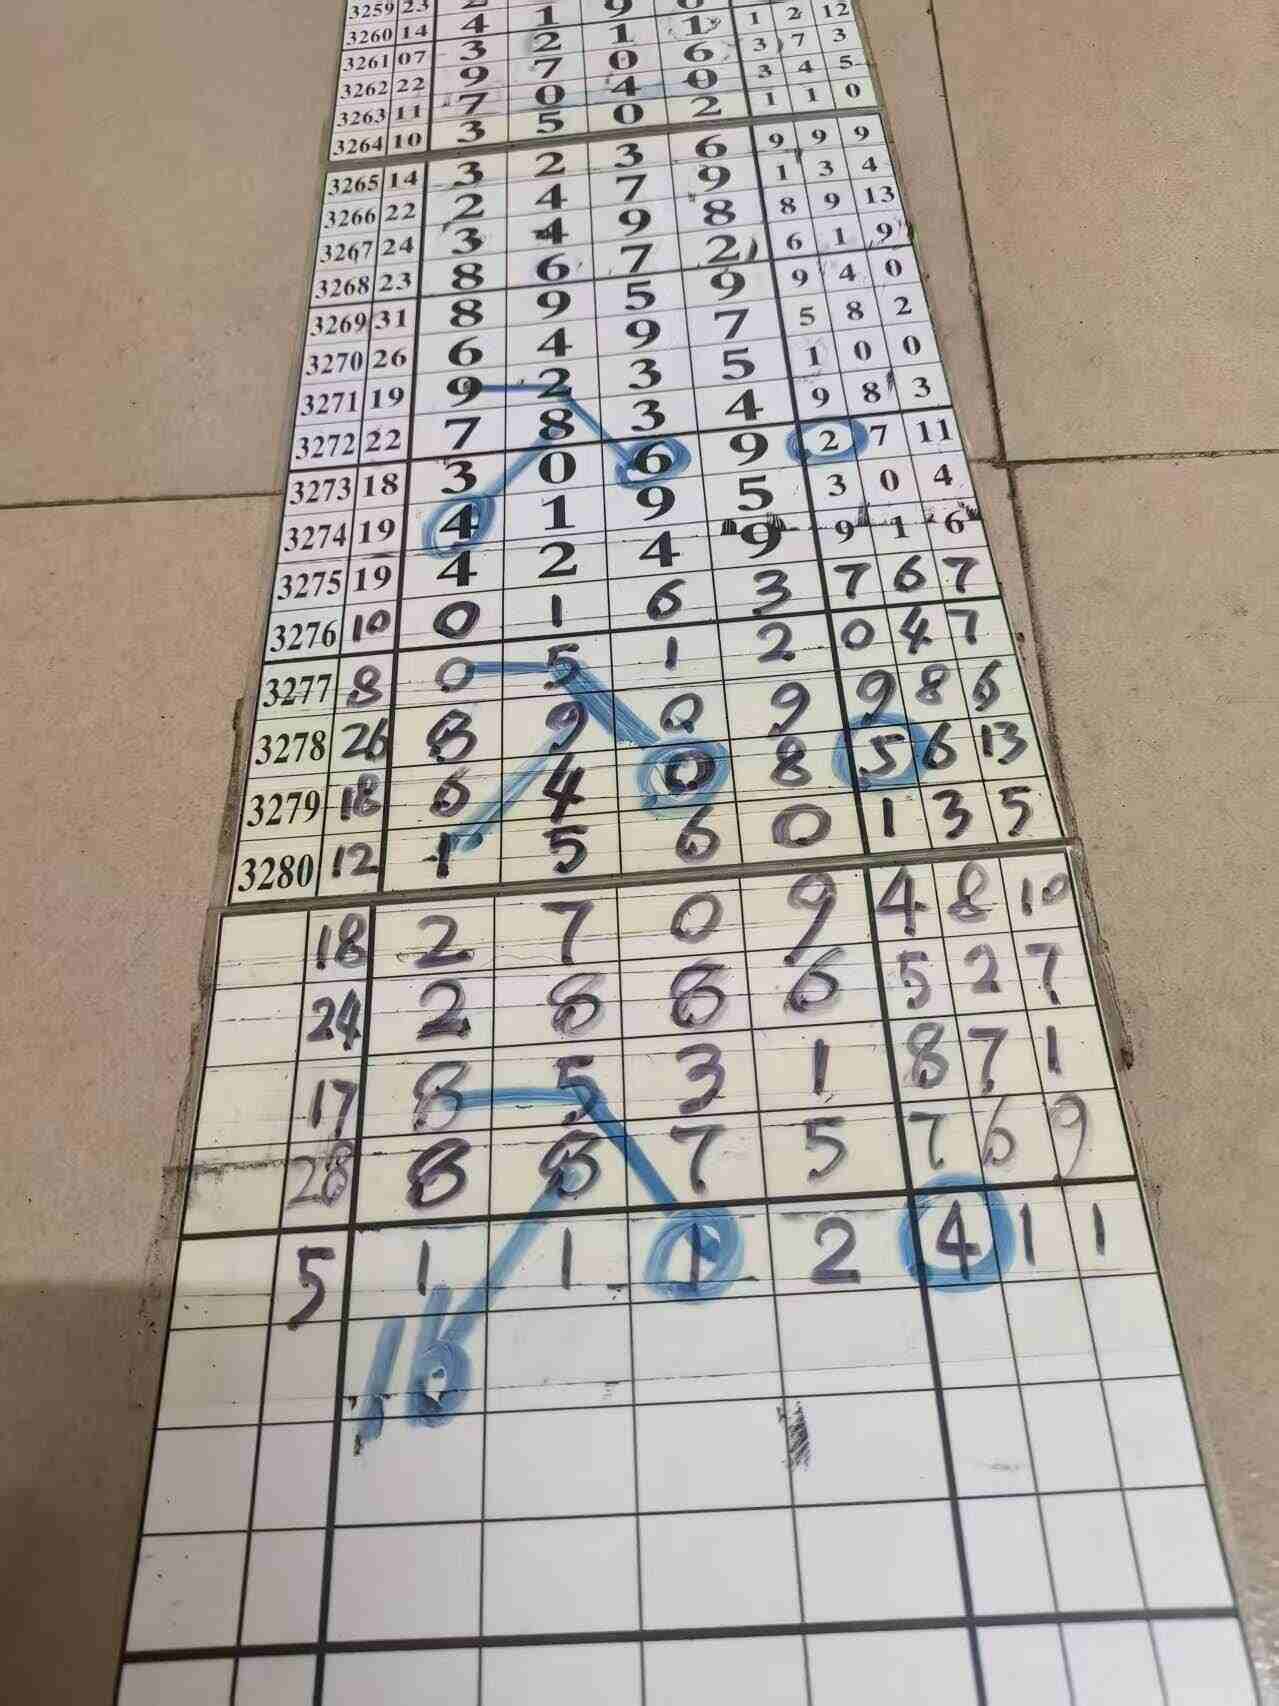 3259 23
3260 14 4 1 9 0
3261 07 3 2 1 1 1 2 12
3262 22 9 7 0 6 3 7 3
3263 11 7 0 4 0 3 4 5
3264 10 3 5 0 2 1 1 0
3265 14 3 2 3 6 9 9 9
3266 22 2 4 7 9 1 3 4
3267 24 3 4 9 8 8 9 13
3268 23 8 6 7 2 6 1 9
3269 31 8 9 5 9 9 4 0
3270 26 6 4 9 7 5 8 2
3271 19 9 2 3 5 1 0 0
3272 22 7 8 3 4 9 8 3
3273 18 3 0 6 9 2 7 11
3274 19 4 1 9 5 3 0 4
3275 19 4 2 4 9 9 1 6
3276 10 0 1 6 3 7 6 7
3277 8 0 5 1 2 0 4 7
3278 26 8 9 0 9 9 8 6
3279 18 6 4 0 8 5 6 13
3280 12 1 5 6 0 1 3 5
18 2 7 0 9 4 8 10
24 2 8 8 6 5 2 7
17 8 5 3 1 8 7 1
28 8 8 7 5 7 6 9
5 1 1 1 2 4 1 1
16